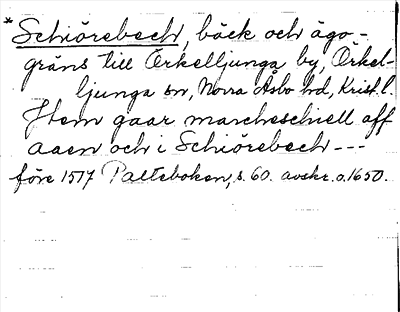 *Schiörebech, bäck och ägo-
gräns till Örkelljunga by, Örkel-
ljunga sn, Norra Åsbo hd, Krist. l.
Hem gaar marcheschiell aff
aaen och i Schiörebech ---
före 1517 Palteboken, s. 60. avskr. o. 1650.